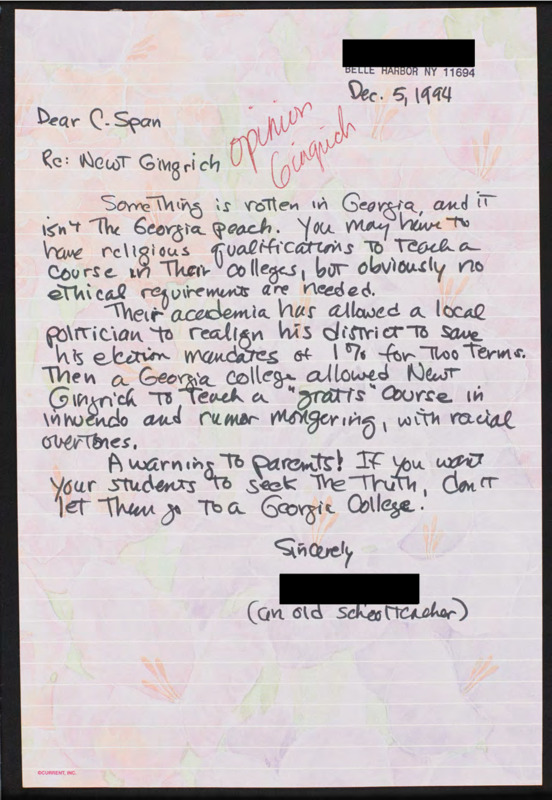 BELLE HARBOR NY 11694
Dec. 5, 1994
Dear C-Span
opinion
Gingrich
Re: Newt Gingrich
Something is rotten in Georgia, and it
isn't the Georgia peach. You may have to
have religious qualifications to teach a
course in their colleges, but obviously no
ethical requirements are needed.
Their academia has allowed a local
politician to realign his district to save
his election mandates of 1% for two terms.
Then a Georgia college allowed Newt
Gingrich to teach a "gratis" course in
innuendo and rumor mongering, with racial
overtones.
A warning to parents! If you want
your students to seek the truth, don't
let them go to a Georgia College.
Sincerely
(an old schoolteacher)
©CURRENT, INC.